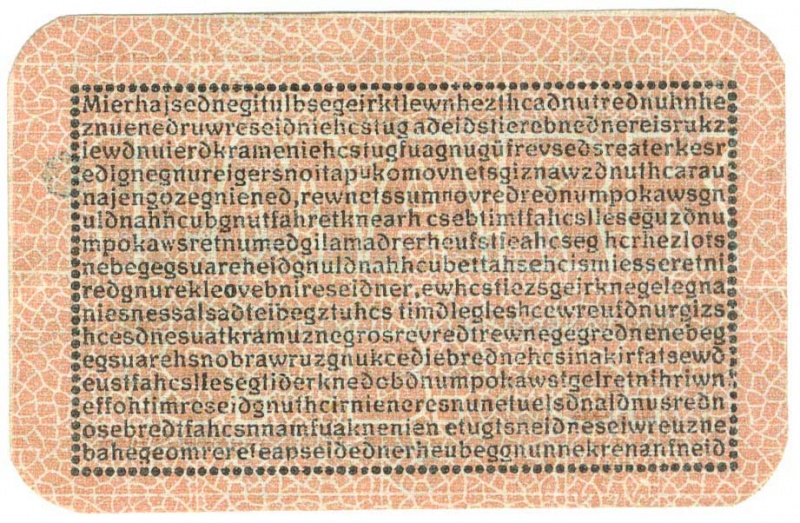 Mierhajsednegitulbsegeirktlewnhezthcadnutrednuhnhe
znuenedruwreseidniehcstug adeidstierebnednereisrukz
iewdnuierdkrameniehcstugfuagnugüfrevsedsreaterkesr
edignegnureigersnoitapukomovnetsgiznawzdnuthcarau
najengozegniened,rewnetssumnovredrednumpokawsgn
uldnahhcubgnutfahretknearh csebtimtfahcslleseguzdnu
mpokawsretnumedgilamadrerheufstfeahcseg hcrhezlots
nebegegsuareheidgnuldnahhcubettahsehcismiesseretni
redgnurekleovebnireseidner,ewhcstiezsgeirknegelegna
niesnessalsadteibegztuhcs timdlegleshcewreufdnurgizs
hcesdnesuatkramuznegrosrevredtrewnegegrednenebeg
egsuarehsnobrawruzgnukcedjebrednehcsinakirfatsewd
eustfahcsllesegtiderknedebdnumpokawstgelretnihriwn
effohtimreseidgnuthcirnieneresnunetuelsdnaldnusredn
osebredtfahcsnnamfuaknenien etugtsneidneseiwreuzne
bahegeomrereteapseidednerheubeggnunnekrenanfneid